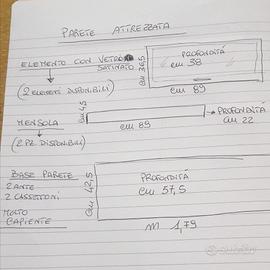 PARETE ATTREZZATA
ELEMENTO CON VETRO
SATINATO
(2 ELEMENTI DISPONIBILI)
PROFONDITÁ
cm 38
cm 36,5
cm 89
MENSOLA
(2 PZ DISPONIBILI)
cm 4,5
cm 89
PROFONDITÁ
cm 22
BASE PARETE
2 ANTE
2 CASSETTONI
MOLTO
CAPIENTE
cm 42,5
PROFONDITÁ
cm 57,5
m 1,79